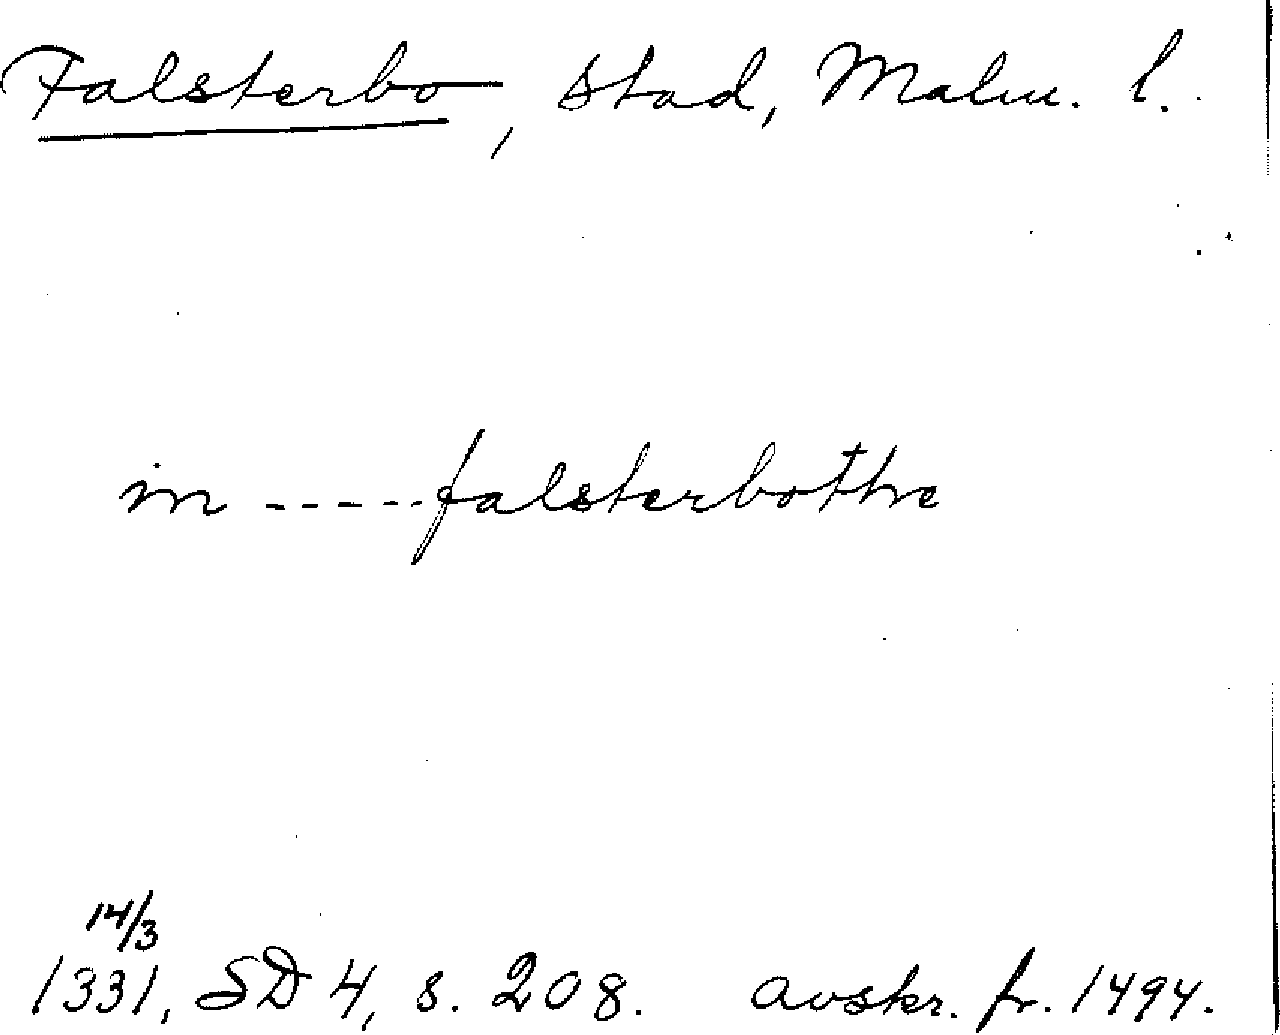 Falsterbo, stad, Malm. l.
in -----falsterbothe
14/3
1331, SD 4, s. 208. avskr. fr. 1494.